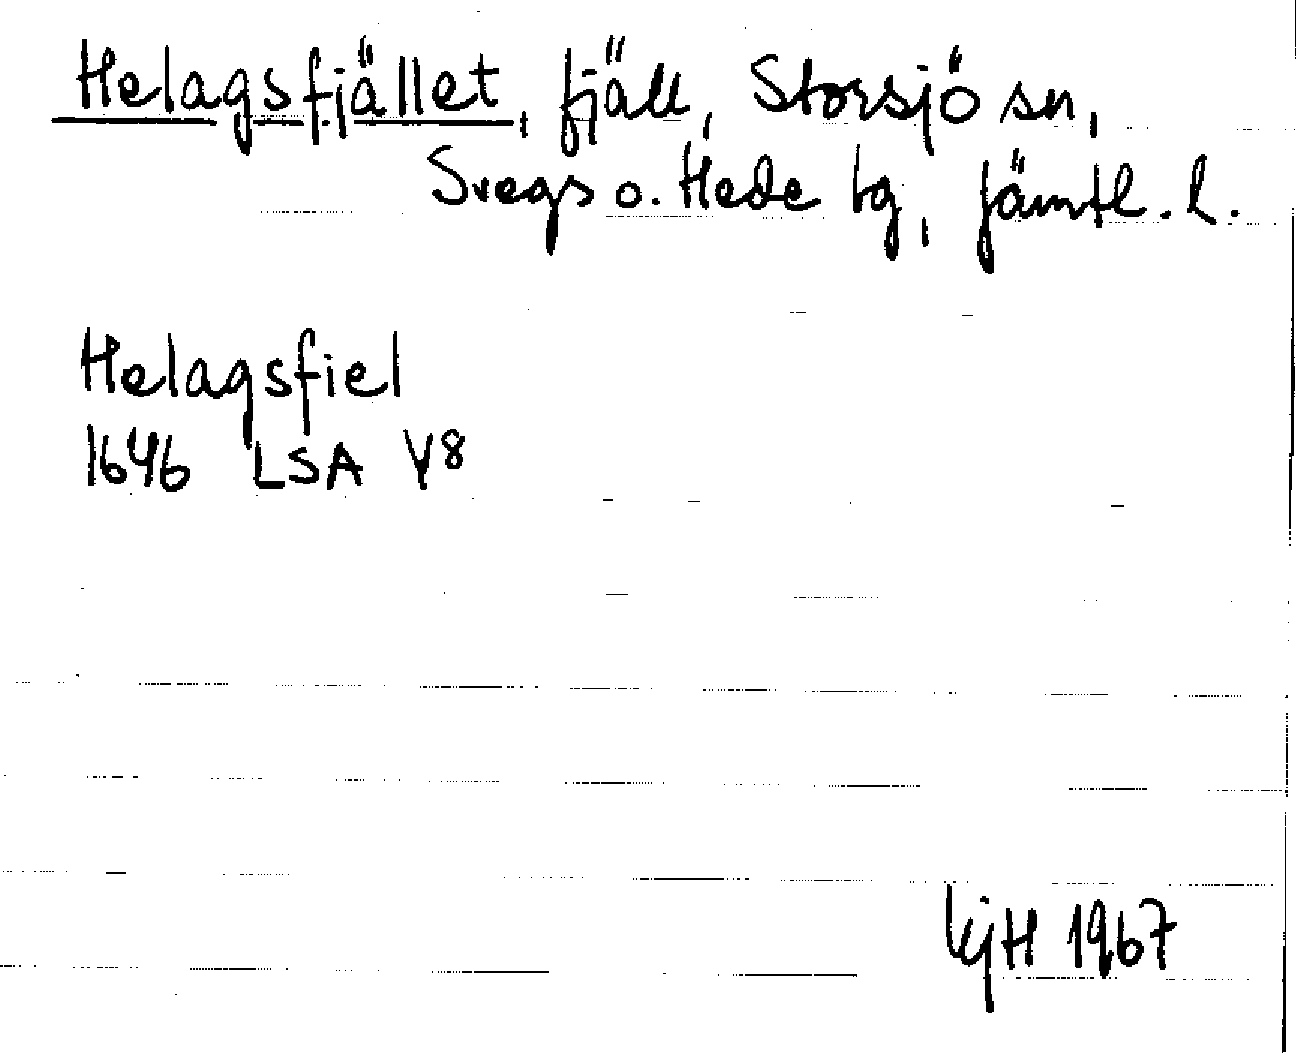 Helagsfjället, fjäll, Storsjö sn,
Svegs o. Hede tg, Jämtl. l.
Helagsfiel
1646 LSA Y8
KjH 1967